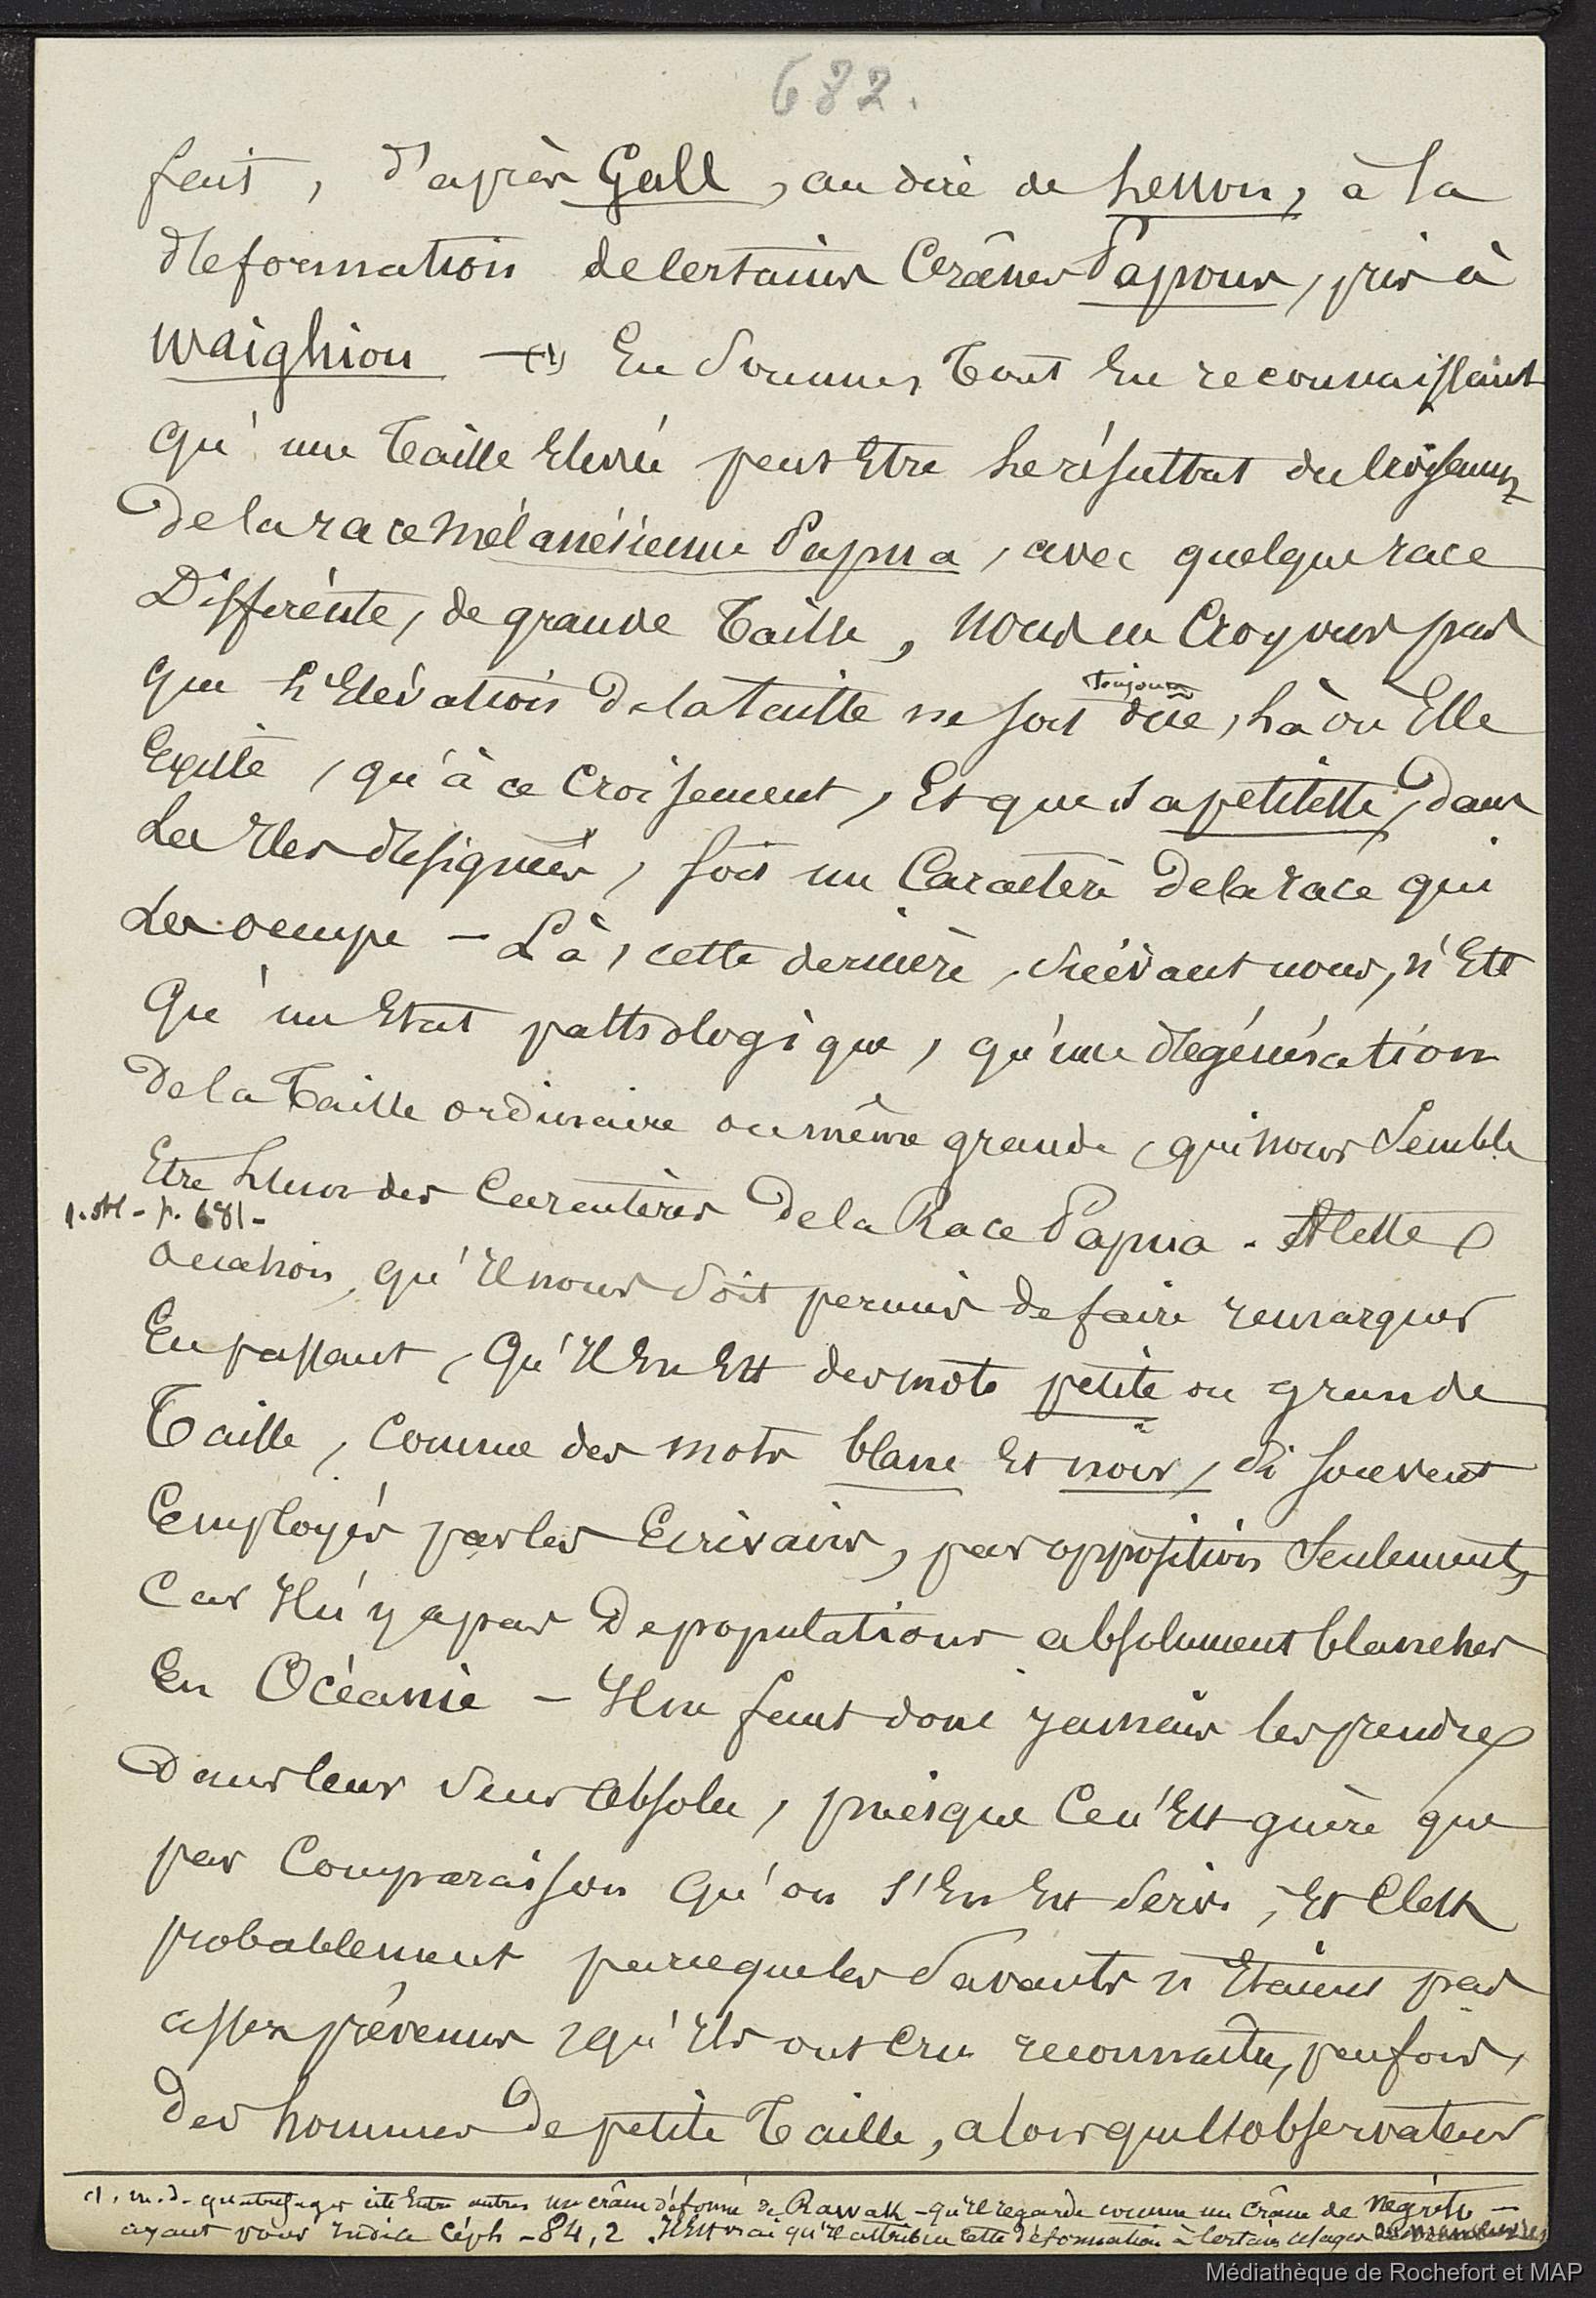 682.
fait, d'après Gall, au dire de Lesson, à la
déformation de certains Crânes Papous, pris à
Waighiou — (1) En Somme, tout En reconnaissant
qu'une taille Elevée peut Etre Le résultat du croisement
de la race Mélanésienne Papua, avec quelque race
Différente, de grande taille, nous ne croyons pas
que L'Elévation de la taille ne soit toujours dûe, Là où Elle
Existe, qu'à ce croisement, Et que sa petitesse, dans
Les Iles désignées, soit un Caractère de la race qui
Les occupe — Là, cette dernière, suivant nous, n'Est
qu'un Etat pathologique, qu'une dégénération
de la taille ordinaire ou même grande, qui nous Semble
Etre L'un des Caractères de la Race Papua. A cette
1. obs - p. 681 -
occasion, qu'Il nous soit permis de faire remarquer
En passant, Qu'Il En Est des mots petite ou grande
taille, comme des mots blanc Et noir, si souvent
Employés par les Ecrivains, par opposition Seulement,
Car Il n'y a pas de populations absolument blanches
En Océanie — Il ne faut donc jamais les prendre
Dans leur sens absolu, puisque Ce n'Est guère que
par Comparaison qu'on s'En Est servi, Et C'est
probablement parceque les Savants n'Etaient pas
assez prévenus, qu'Ils ont cru reconnaître, parfois,
des hommes de petite taille, alors que les observateurs
(1. M. de Quatrefages cite Entre autres un crâne déformé de Rawak - qu'Il regarde comme un crâne de Négrito —
ayant pour Indice Céph - 84,2. Il Est vrai qu'Il attribue cette déformation à certains usages
Médiathèque de Rochefort et MAP